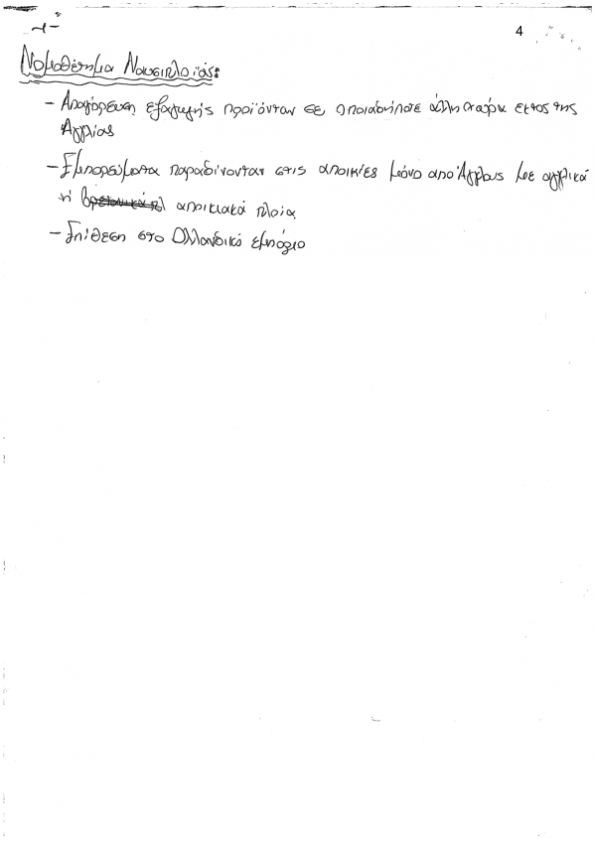 4
Νομοθέτημα Ναυσιπλοϊάς:
- Απαγόρευση εξαγωγής προϊόντων σε οποιαδήποτε άλλη χώρα εκτός της
Αγγλίας
- Εμπορεύματα παραδίνονταν στις αποικίες μόνο από Άγγλους με αγγλικά
ή αποικιακά πλοία
- Επίθεση στο Ολλανδικό εμπόριο